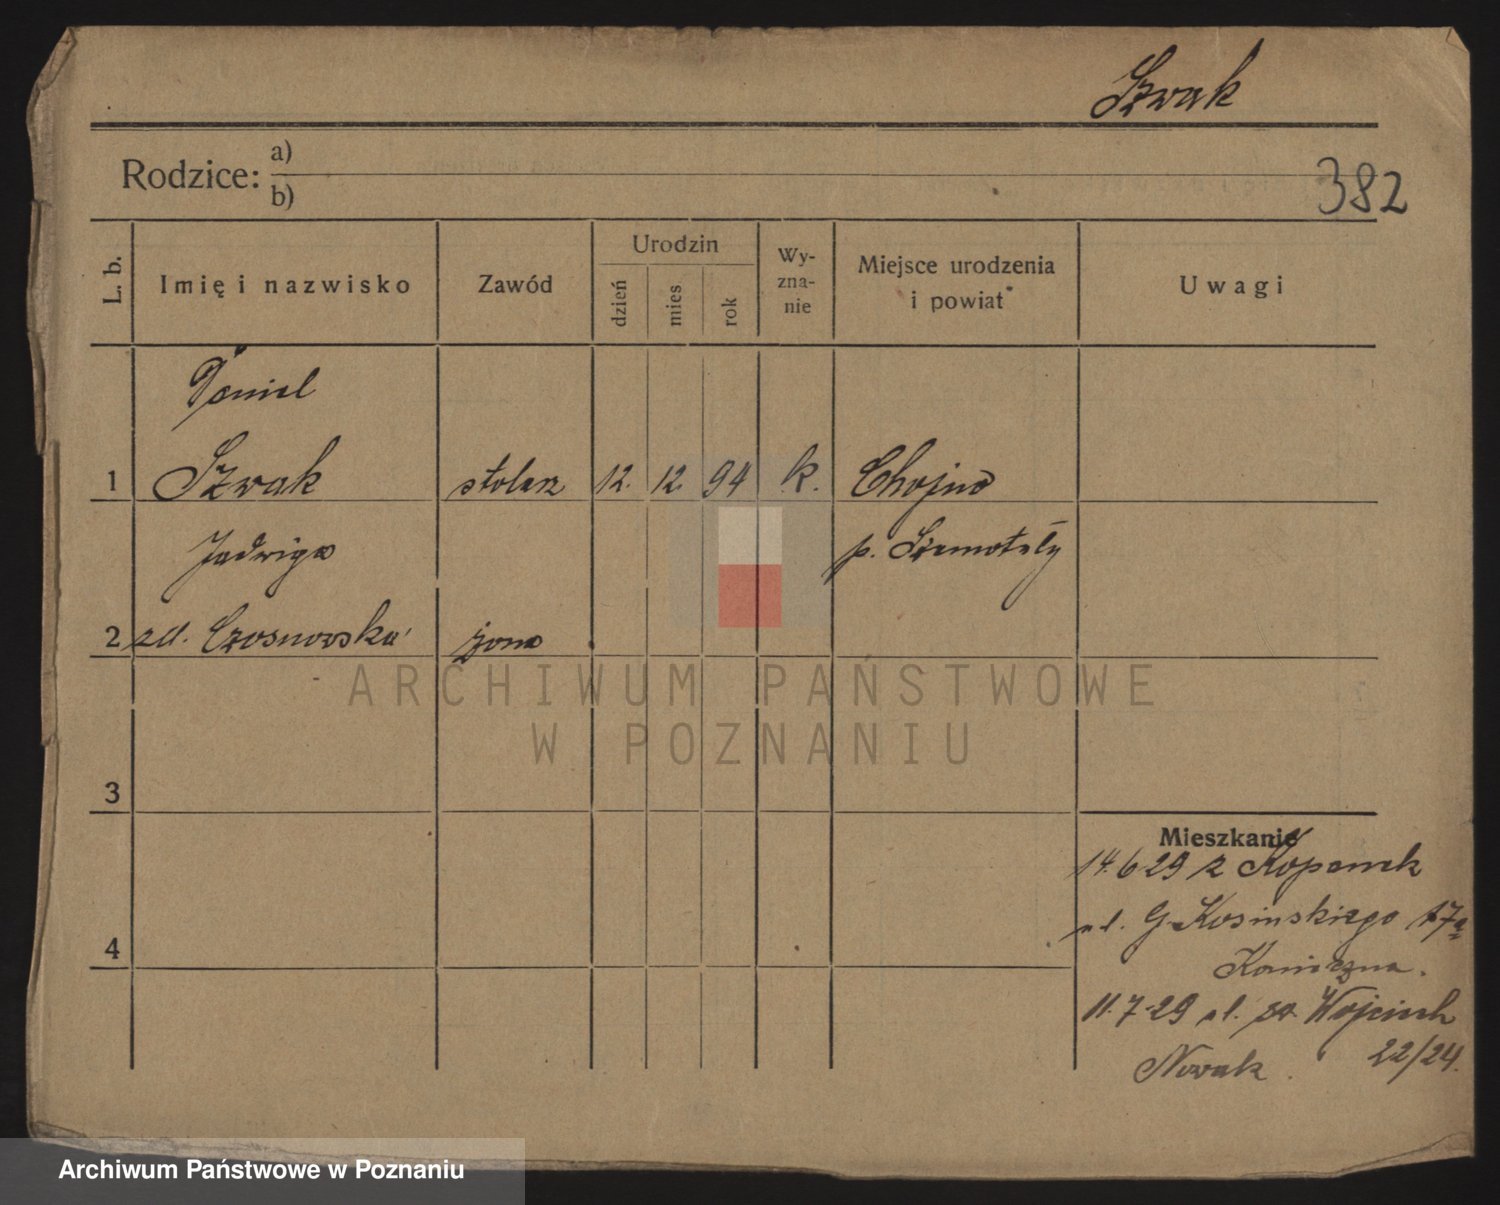 Szwak
Rodzice: a)
b)
382
L. b.
Imię i nazwisko
Zawód
Urodzin
dzień
mies
rok
Wy-
zna-
nie
Miejsce urodzenia
i powiat
Uwagi
Daniel
1 Szwak stolarz 12. 12. 94 k. Chojno
Jadwiga p. Szamotuły
2 zd. Czosnowska żona
3
4
Mieszkanie
14.6.29 z Kopanek
ul. G. Kosińskiego 17a
Konieczna.
11.7.29 ul. św. Wojciech
22/24.
Nowak.
ARCHIWUM PAŃSTWOWE
W POZNANIU
Archiwum Państwowe w Poznaniu